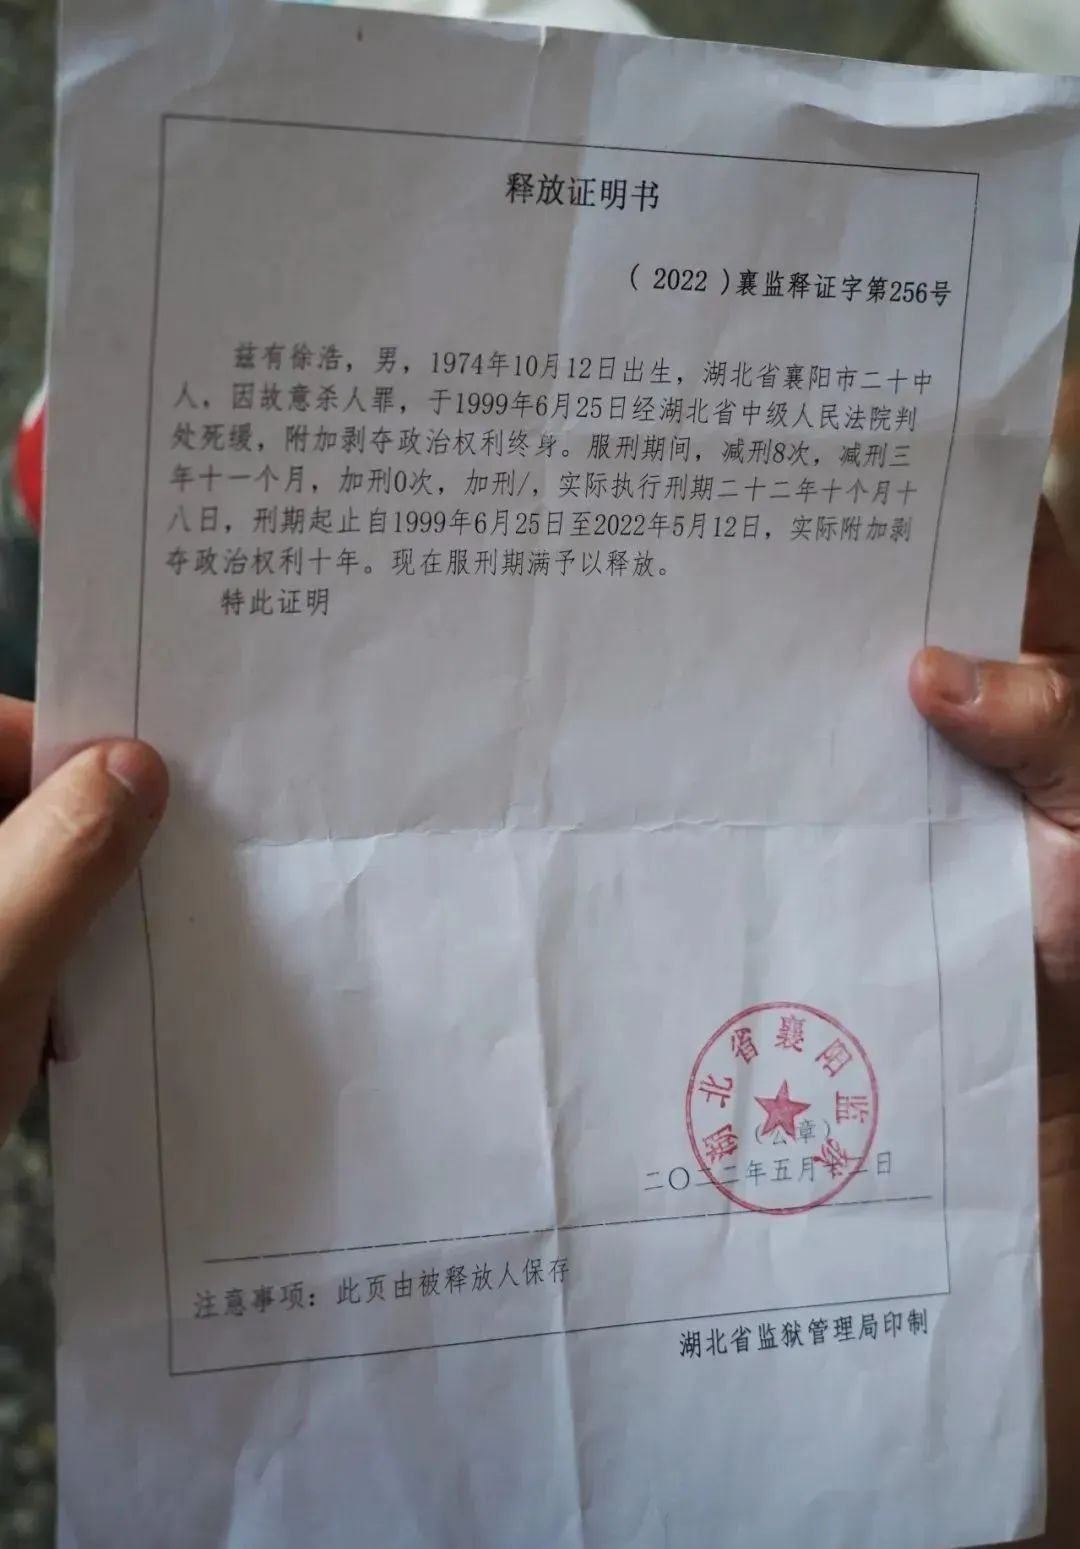 释放证明书
（ 2022 ）襄监释证字第256号
兹有徐浩，男，1974年10月12日出生，湖北省襄阳市二十中
人，因故意杀人罪，于1999年6月25日经湖北省中级人民法院判
处死缓，附加剥夺政治权利终身。服刑期间，减刑8次，减刑三
年十一个月，加刑0次，加刑/，实际执行刑期二十二年十个月十
八日，刑期起止自1999年6月25日至2022年5月12日，实际附加剥
夺政治权利十年。现在服刑期满予以释放。
特此证明
湖北省襄阳监狱
（公章）
二〇二二年五月十二日
注意事项：此页由被释放人保存
湖北省监狱管理局印制